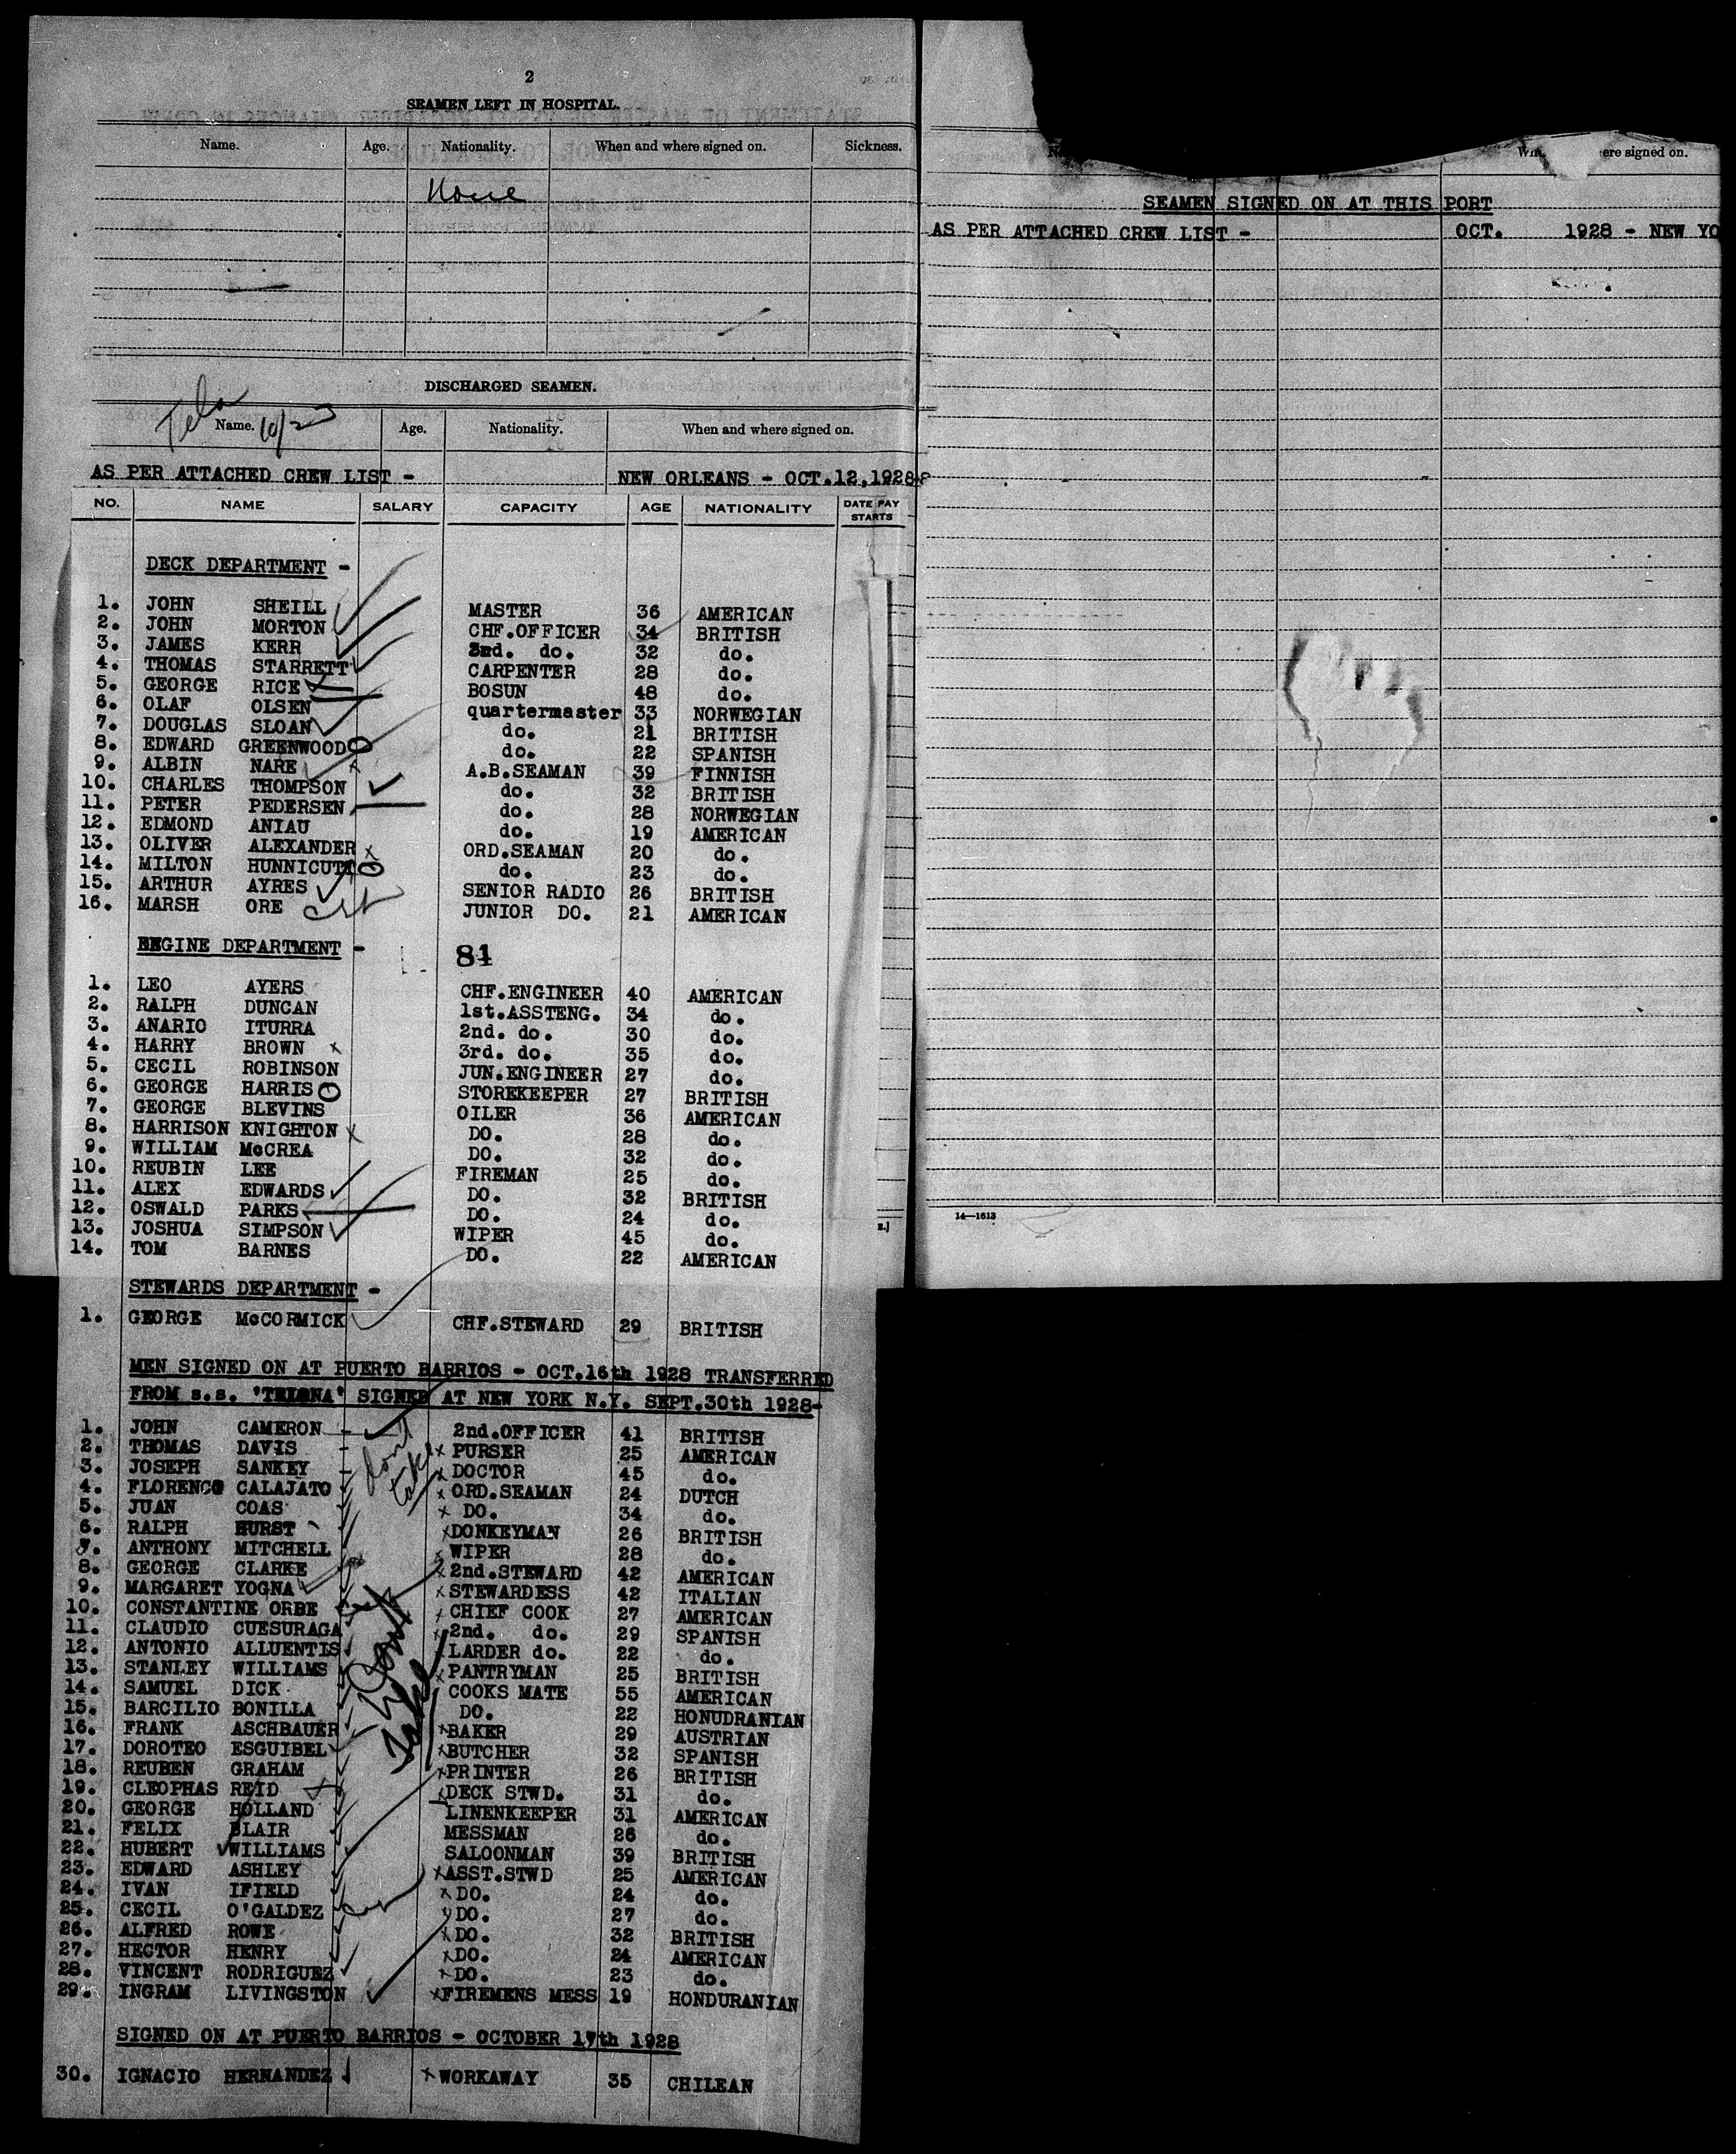 2
SEAMEN LEFT IN HOSPITAL.
Name. Age. Nationality. When and where signed on. Sickness.
None
DISCHARGED SEAMEN.
Tela 10/23
Name. Age. Nationality. When and where signed on.
AS PER ATTACHED CREW LIST - NEW ORLEANS - OCT.12,1928
NO. NAME SALARY CAPACITY AGE NATIONALITY DATE PAY STARTS
DECK DEPARTMENT -
1. JOHN SHEILL MASTER 36 AMERICAN
2. JOHN MORTON CHF.OFFICER 34 BRITISH
3. JAMES KERR 3rd. do. 32 do.
4. THOMAS STARRETT CARPENTER 28 do.
5. GEORGE RICE BOSUN 48 do.
6. OLAF OLSEN quartermaster 33 NORWEGIAN
7. DOUGLAS SLOAN do. 21 BRITISH
8. EDWARD GREENWOOD do. 22 SPANISH
9. ALBIN NARE A.B.SEAMAN 39 FINNISH
10. CHARLES THOMPSON do. 32 BRITISH
11. PETER PEDERSEN do. 28 NORWEGIAN
12. EDMOND ANIAU do. 19 AMERICAN
13. OLIVER ALEXANDER ORD.SEAMAN 20 do.
14. MILTON HUNNICUTT do. 23 do.
15. ARTHUR AYRES SENIOR RADIO 26 BRITISH
16. MARSH ORE JUNIOR DO. 21 AMERICAN
ENGINE DEPARTMENT - 81
1. LEO AYERS CHF.ENGINEER 40 AMERICAN
2. RALPH DUNCAN 1st.ASSTENG. 34 do.
3. ANARIO ITURRA 2nd. do. 30 do.
4. HARRY BROWN 3rd. do. 35 do.
5. CECIL ROBINSON JUN.ENGINEER 27 do.
6. GEORGE HARRIS STOREKEEPER 27 BRITISH
7. GEORGE BLEVINS OILER 36 AMERICAN
8. HARRISON KNIGHTON DO. 28 do.
9. WILLIAM McCREA DO. 32 do.
10. REUBIN LEE FIREMAN 25 do.
11. ALEX EDWARDS DO. 32 BRITISH
12. OSWALD PARKS DO. 24 do.
13. JOSHUA SIMPSON WIPER 45 do.
14. TOM BARNES DO. 22 AMERICAN
STEWARDS DEPARTMENT -
1. GEORGE McCORMICK CHF.STEWARD 29 BRITISH
MEN SIGNED ON AT PUERTO BARRIOS - OCT.16th 1928 TRANSFERRED
FROM s.s. SIGNED AT NEW YORK N.Y. SEPT.30th 1928-
1. JOHN CAMERON - 2nd.OFFICER 41 BRITISH
2. THOMAS DAVIS - PURSER 25 AMERICAN
3. JOSEPH SANKEY - DOCTOR 45 do.
4. FLORENCO CALAJATO ORD.SEAMAN 24 DUTCH
5. JUAN COAS DO. 34 do.
6. RALPH HURST DONKEYMAN 26 BRITISH
7. ANTHONY MITCHELL WIPER 28 do.
8. GEORGE CLARKE 2nd.STEWARD 42 AMERICAN
9. MARGARET YOGNA STEWARDESS 42 ITALIAN
10. CONSTANTINE ORBE CHIEF COOK 27 AMERICAN
11. CLAUDIO CUESURAGA 2nd. do. 29 SPANISH
12. ANTONIO ALLUENTIS LARDER do. 22 do.
13. STANLEY WILLIAMS PANTRYMAN 25 BRITISH
14. SAMUEL DICK COOKS MATE 55 AMERICAN
15. BARCILIO BONILLA DO. 22 HONUDRANIAN
16. FRANK ASCHBAUER BAKER 29 AUSTRIAN
17. DOROTEO ESGUIBEL BUTCHER 32 SPANISH
18. REUBEN GRAHAM PRINTER 26 BRITISH
19. CLEOPHAS REID DECK STWD. 31 do.
20. GEORGE HOLLAND LINENKEEPER 31 AMERICAN
21. FELIX BLAIR MESSMAN 26 do.
22. HUBERT WILLIAMS SALOONMAN 39 BRITISH
23. EDWARD ASHLEY ASST.STWD 25 AMERICAN
24. IVAN IFIELD DO. 24 do.
25. CECIL O'GALDEZ DO. 27 do.
26. ALFRED ROWE DO. 32 BRITISH
27. HECTOR HENRY DO. 24 AMERICAN
28. VINCENT RODRIGUEZ DO. 23 do.
29. INGRAM LIVINGSTON FIREMENS MESS 19 HONDURANIAN
SIGNED ON AT PUERTO BARRIOS - OCTOBER 17th 1928
30. IGNACIO HERNANDEZ WORKAWAY 35 CHILEAN
dont take
Dont take
ere signed on.
SEAMEN SIGNED ON AT THIS PORT
AS PER ATTACHED CREW LIST - OCT. 1928 - NEW YO
14—1613